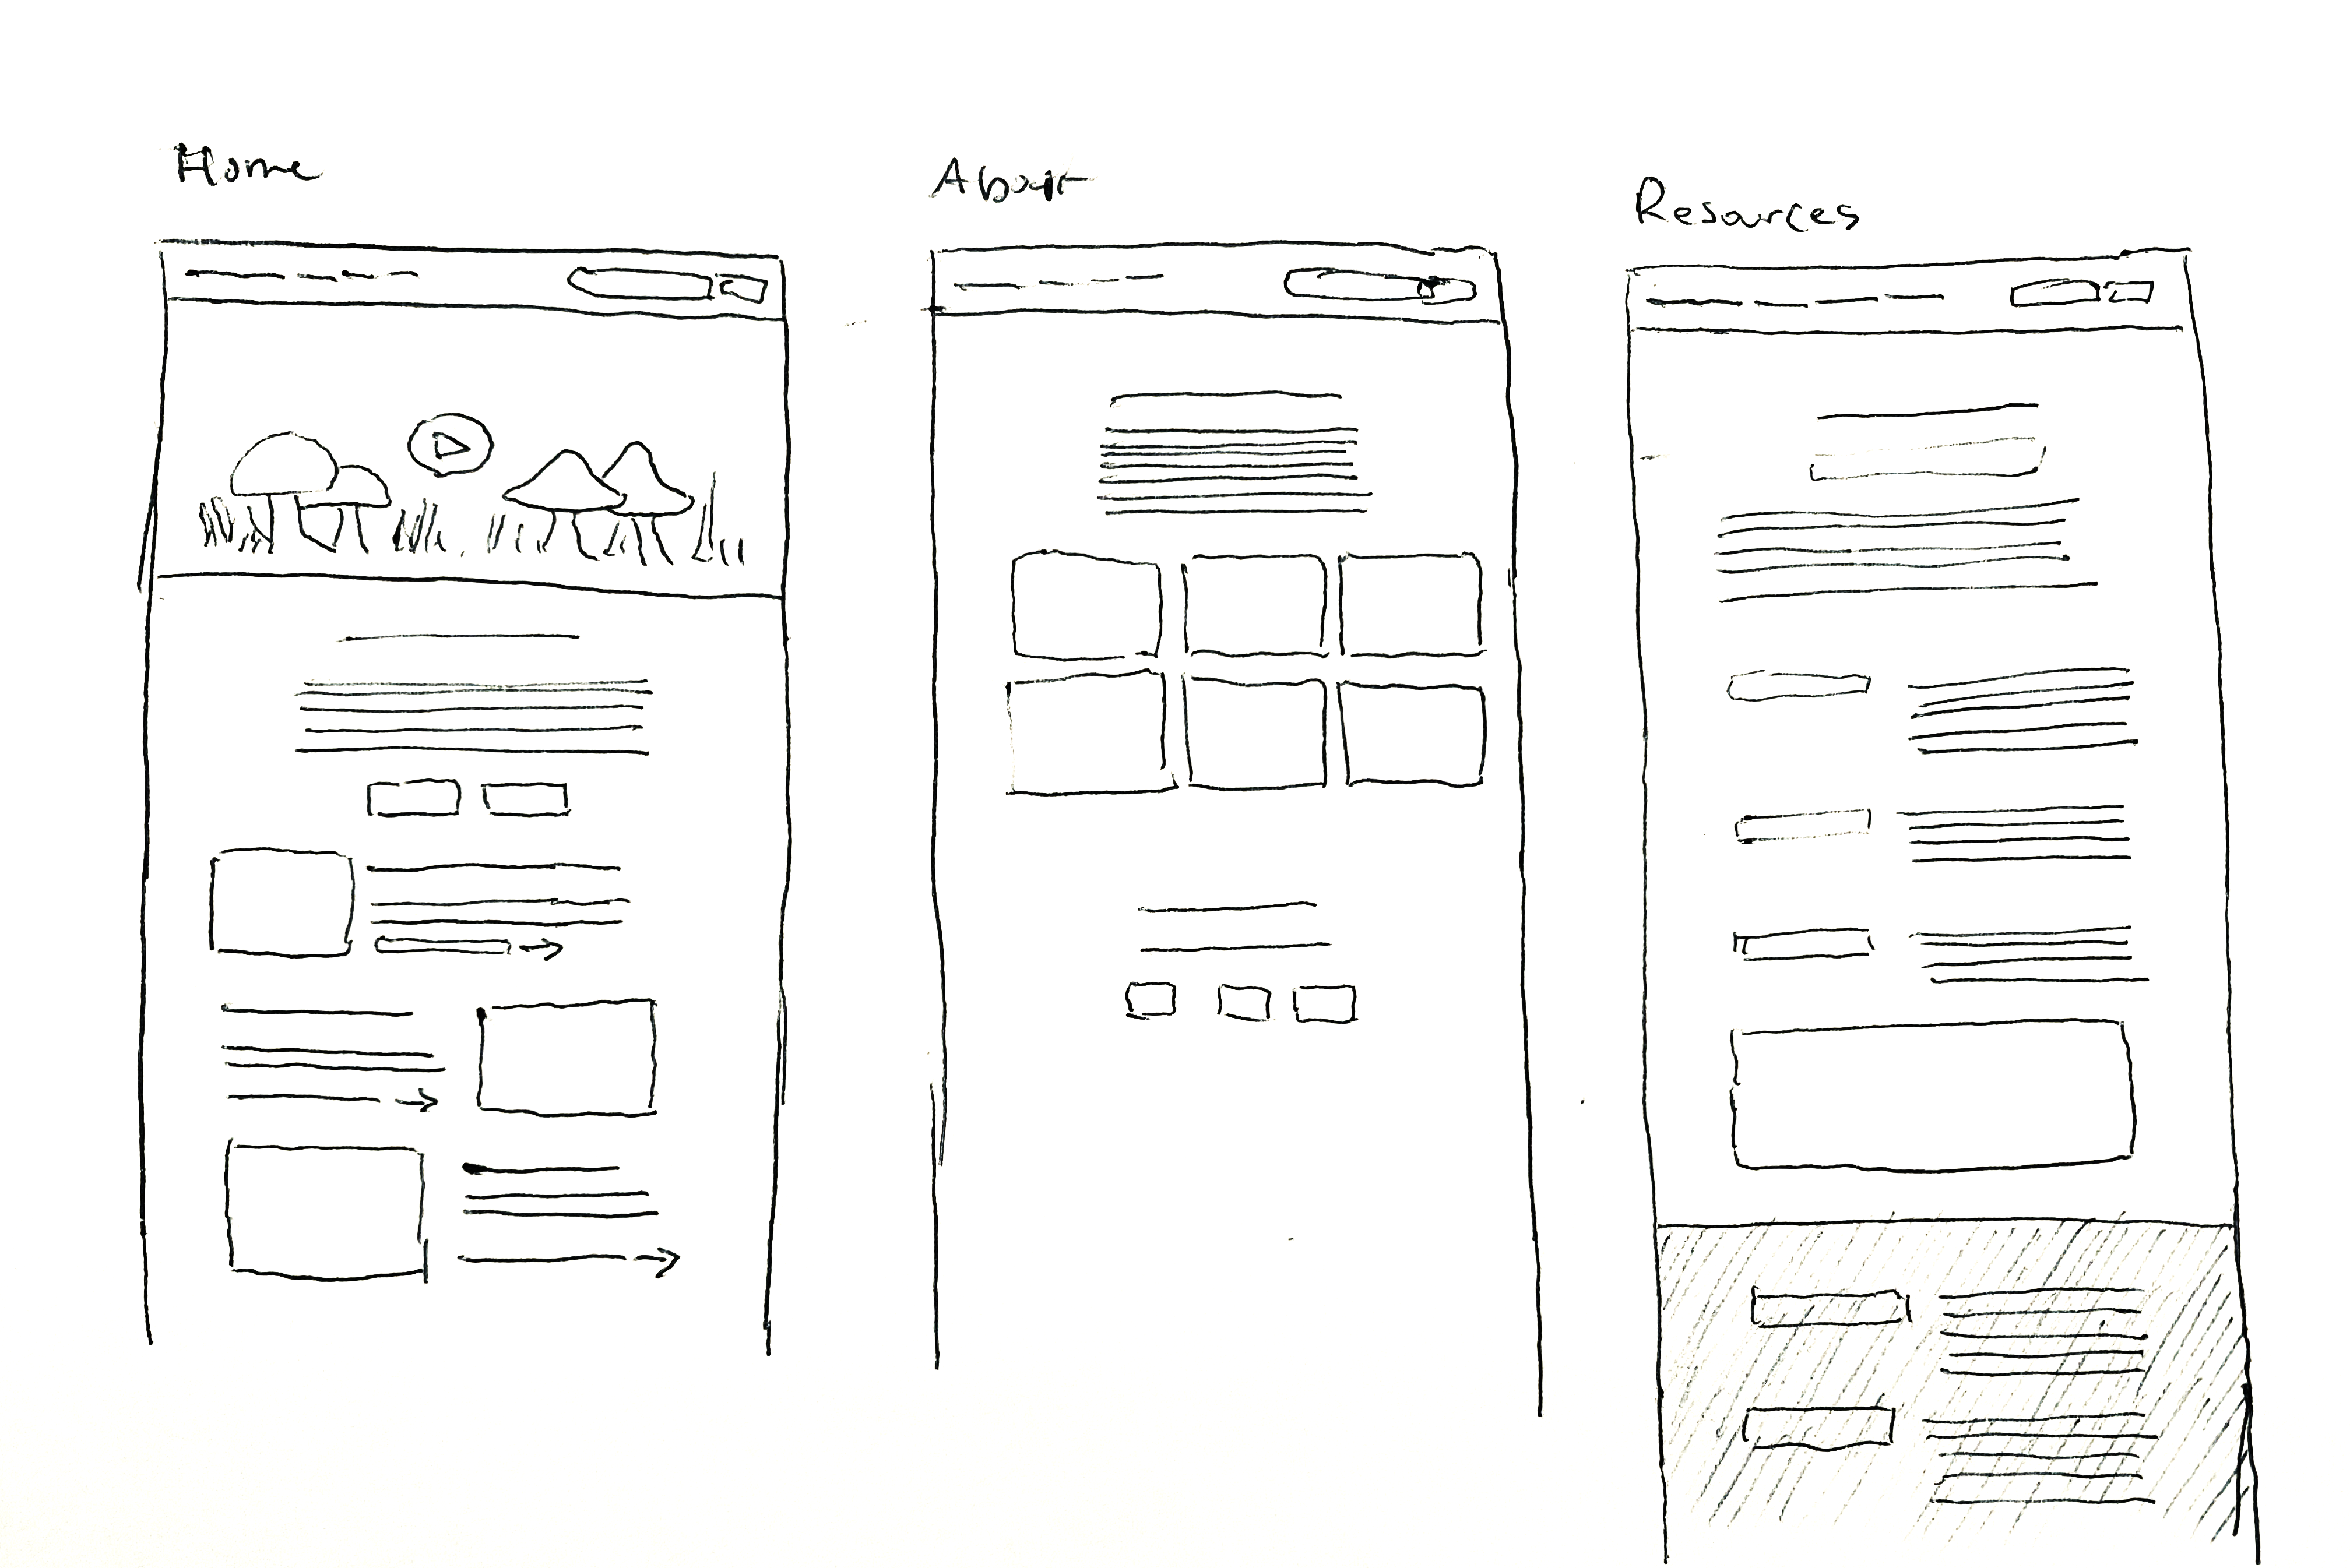 Home
About
Resources